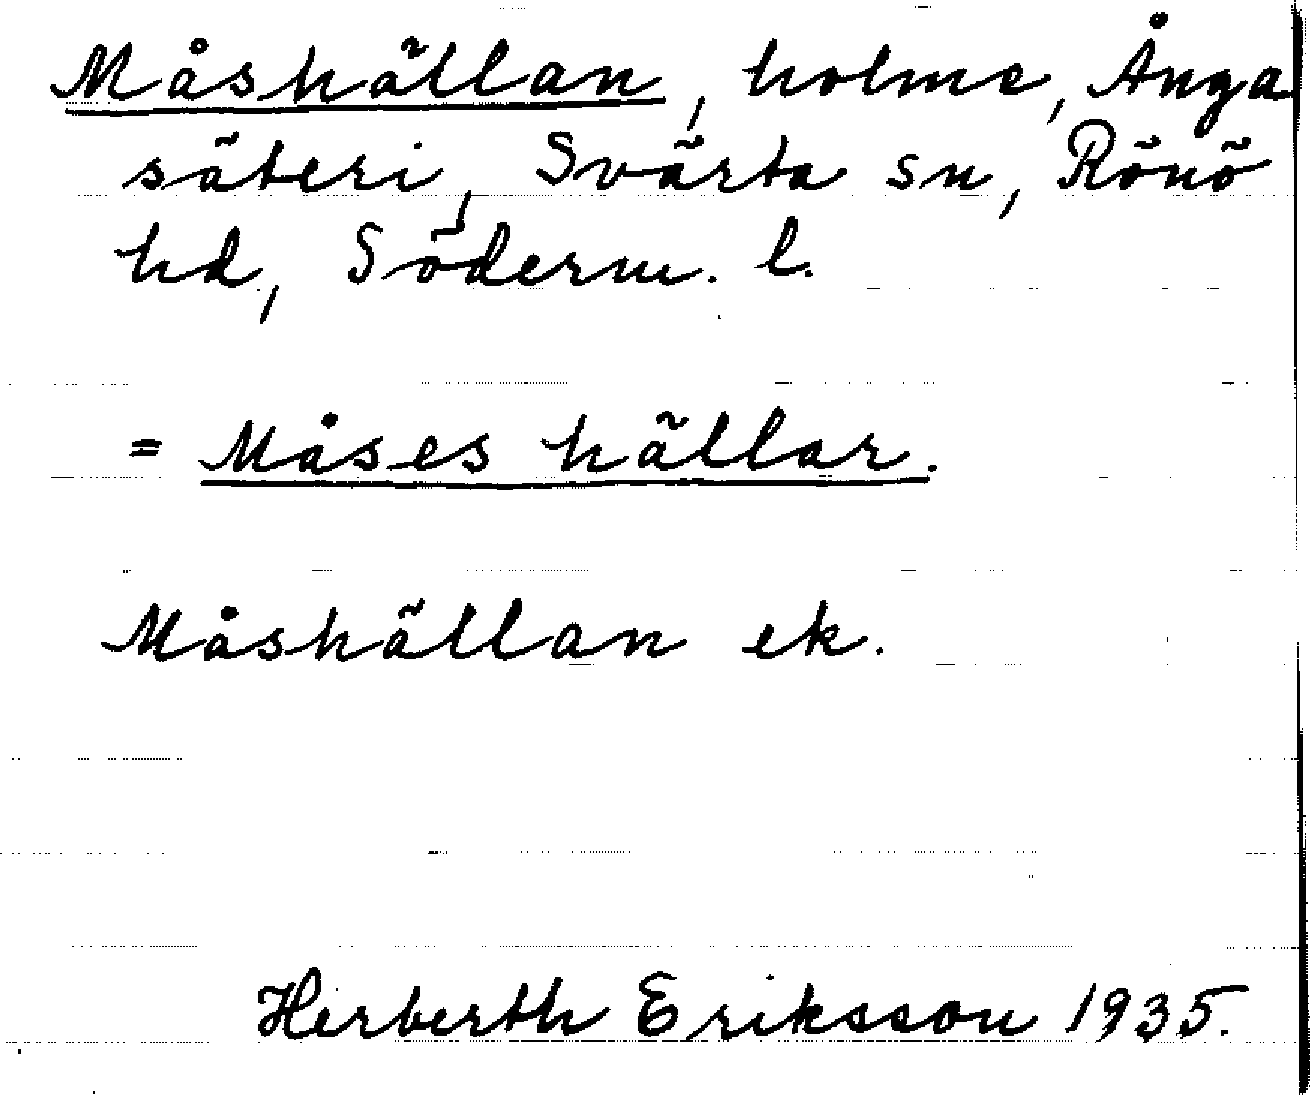 Måshällan, holme, Ånga
säteri, Svärta sn, Rönö
hd, Söderm. l.
= Måses hällar.
Måshällan ek.
Herberth Eriksson 1935.